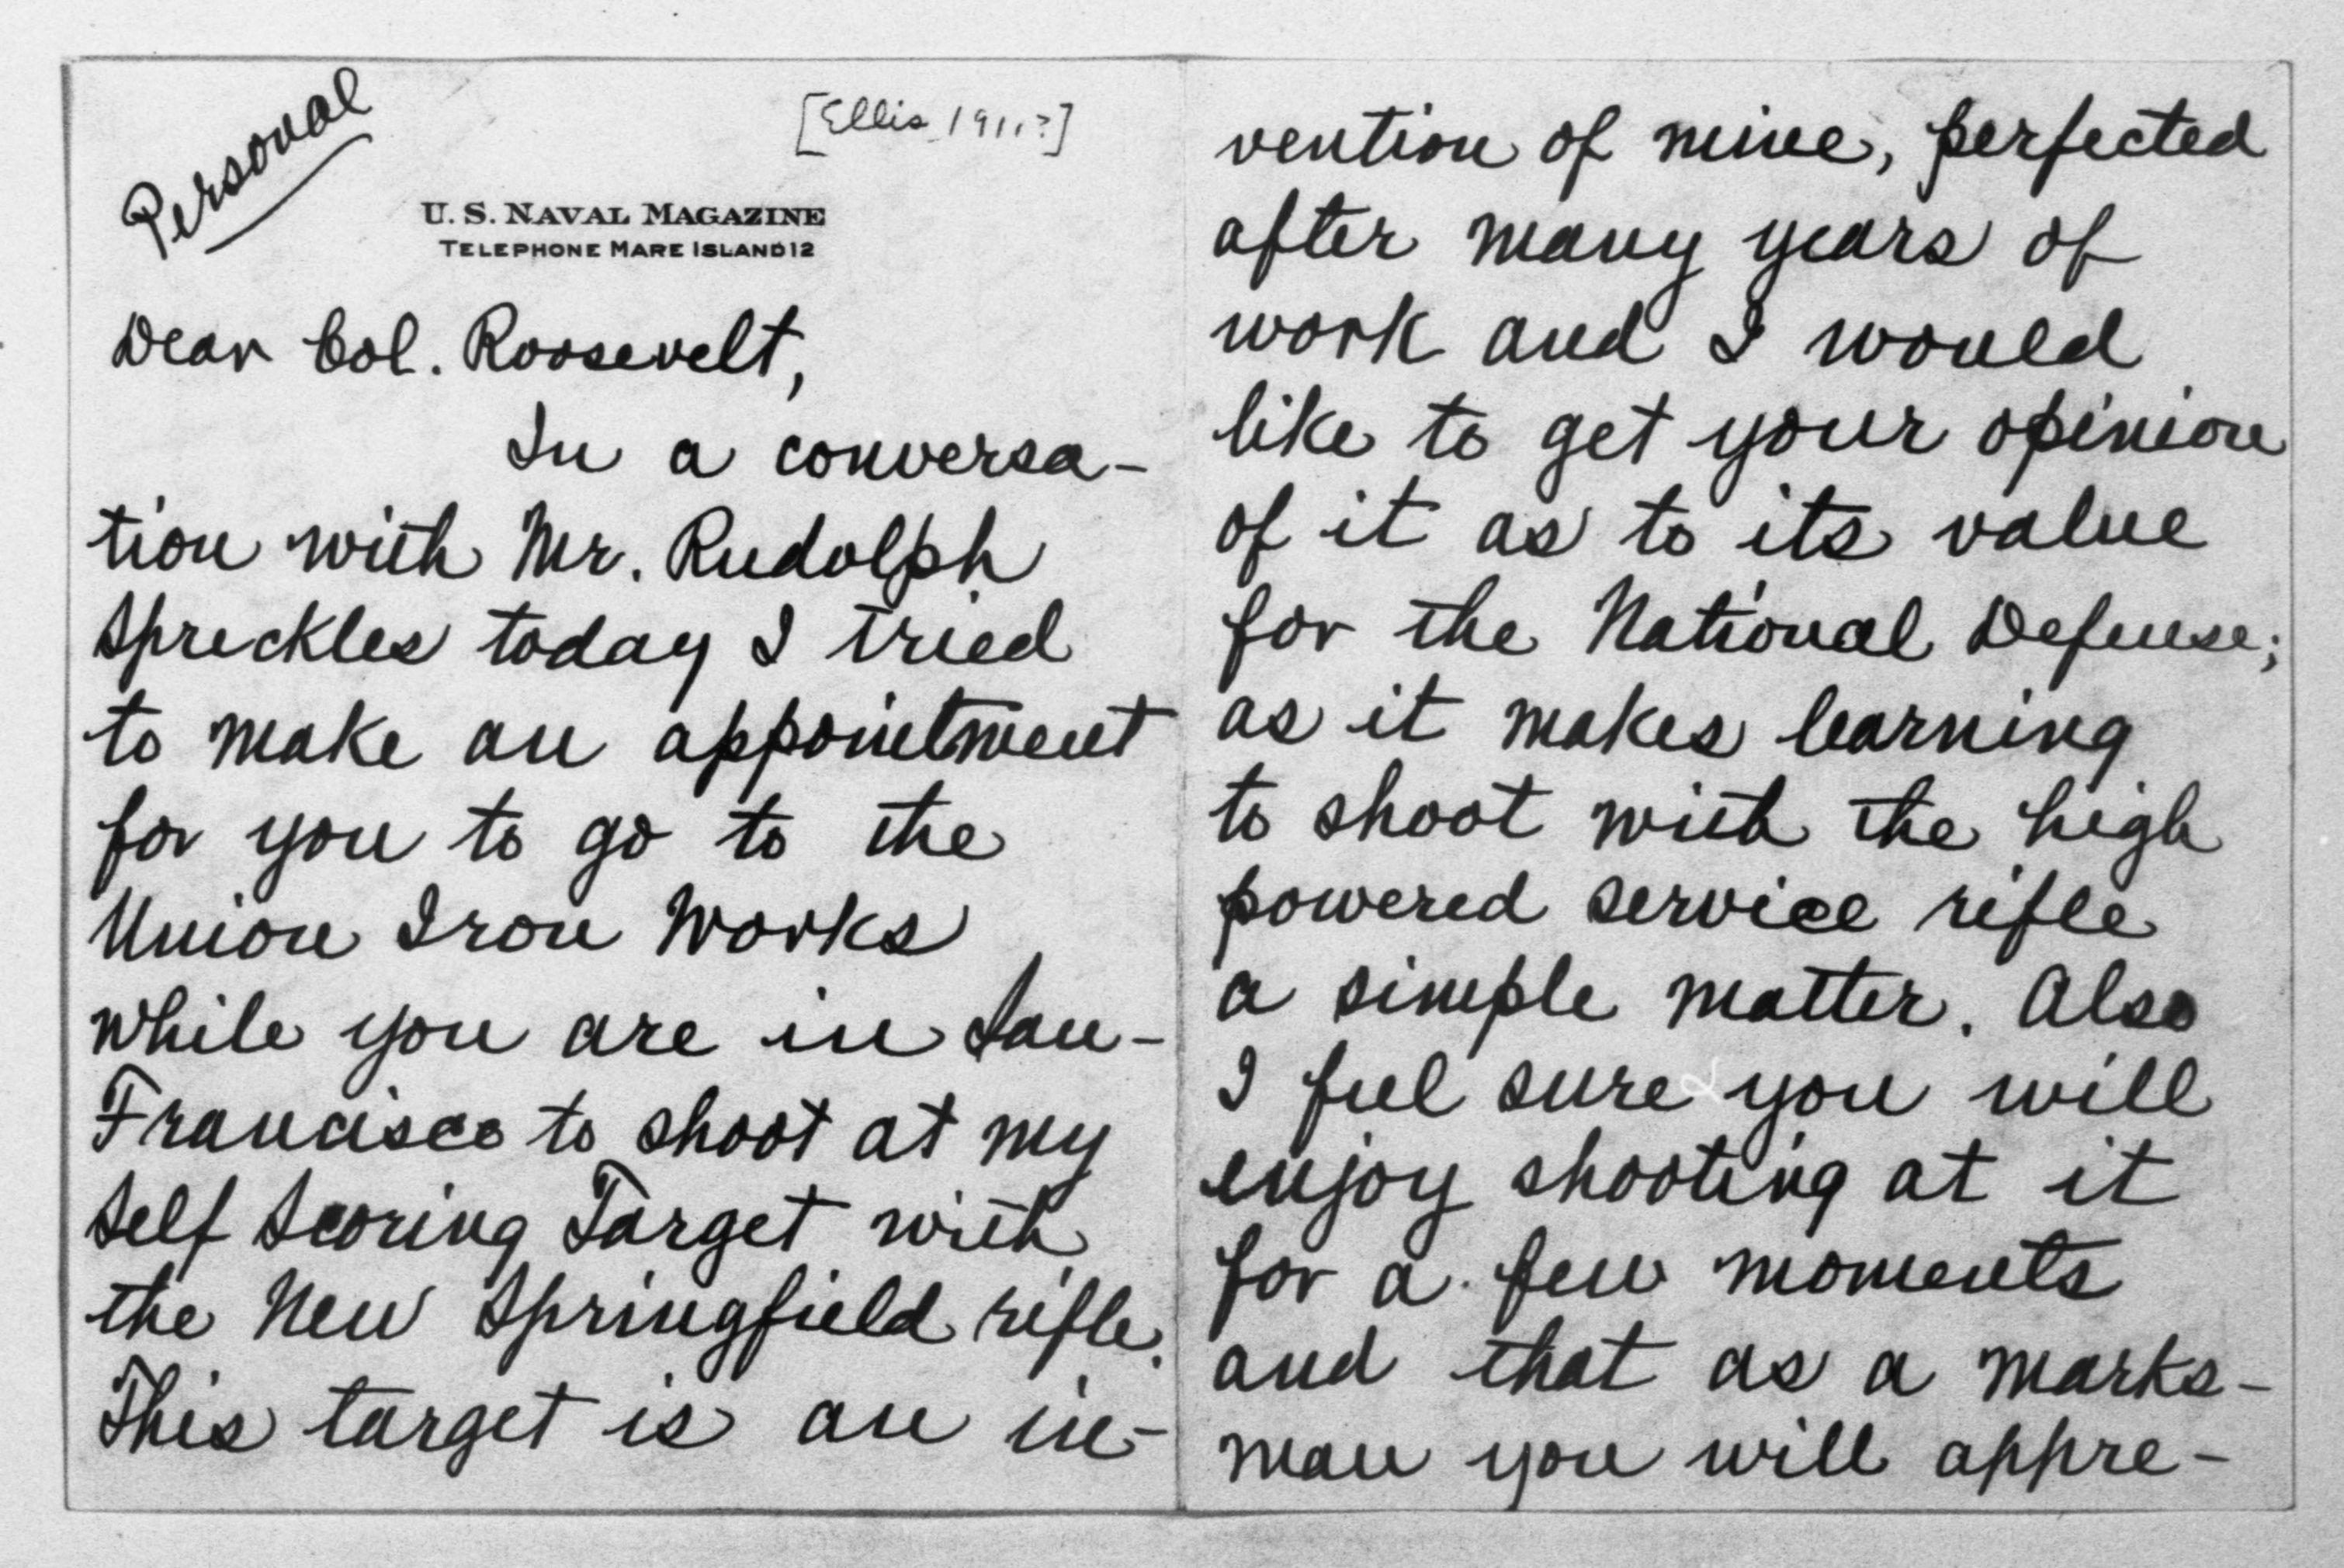 Personal
[Ellis 1911?]
U. S. NAVAL MAGAZINE
TELEPHONE MARE ISLAND 12
Dear Col. Roosevelt,
In a conversa-
tion with Mr. Rudolph
Spreckles today I tried
to make an appointment
for you to go to the
Union Iron Works
while you are in San-
Francisco to shoot at my
Self Scoring Target with
the New Springfield rifle.
This target is an in-
vention of mine, perfected
after many years of
work and I would
like to get your opinion
of it as to its value
for the National Defense;
as it makes learning
to shoot with the high
powered service rifle
a simple matter. Also
I feel sure you will
enjoy shooting at it
for a few moments
and that as a marks-
man you will appre-